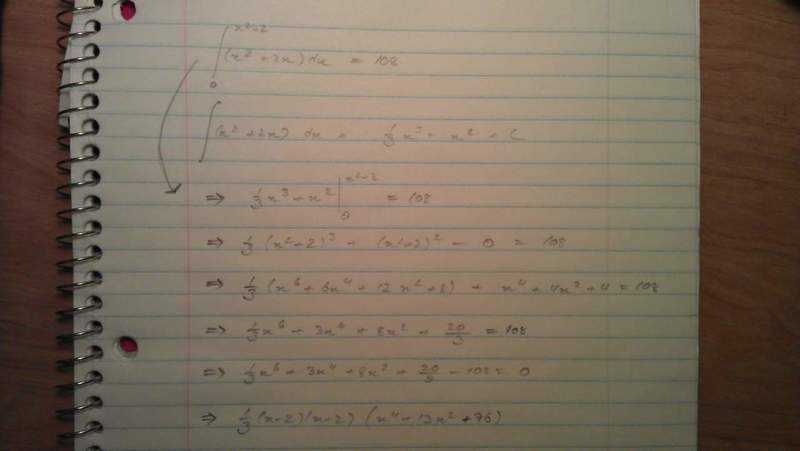 ∫₀^(x²+2) (x² + 2x) dx = 108
∫ (x² + 2x) dx = ⅓x³ + x² + C
⇒ ⅓x³ + x² |₀^(x²+2) = 108
⇒ ⅓(x²+2)³ + (x²+2)² - 0 = 108
⇒ ⅓(x⁶ + 6x⁴ + 12x² + 8) + x⁴ + 4x² + 4 = 108
⇒ ⅓x⁶ + 3x⁴ + 8x² + 20/3 = 108
⇒ ⅓x⁶ + 3x⁴ + 8x² + 20/3 - 108 = 0
⇒ ⅓(x-2)(x+2)(x⁴ + 13x² + 76)